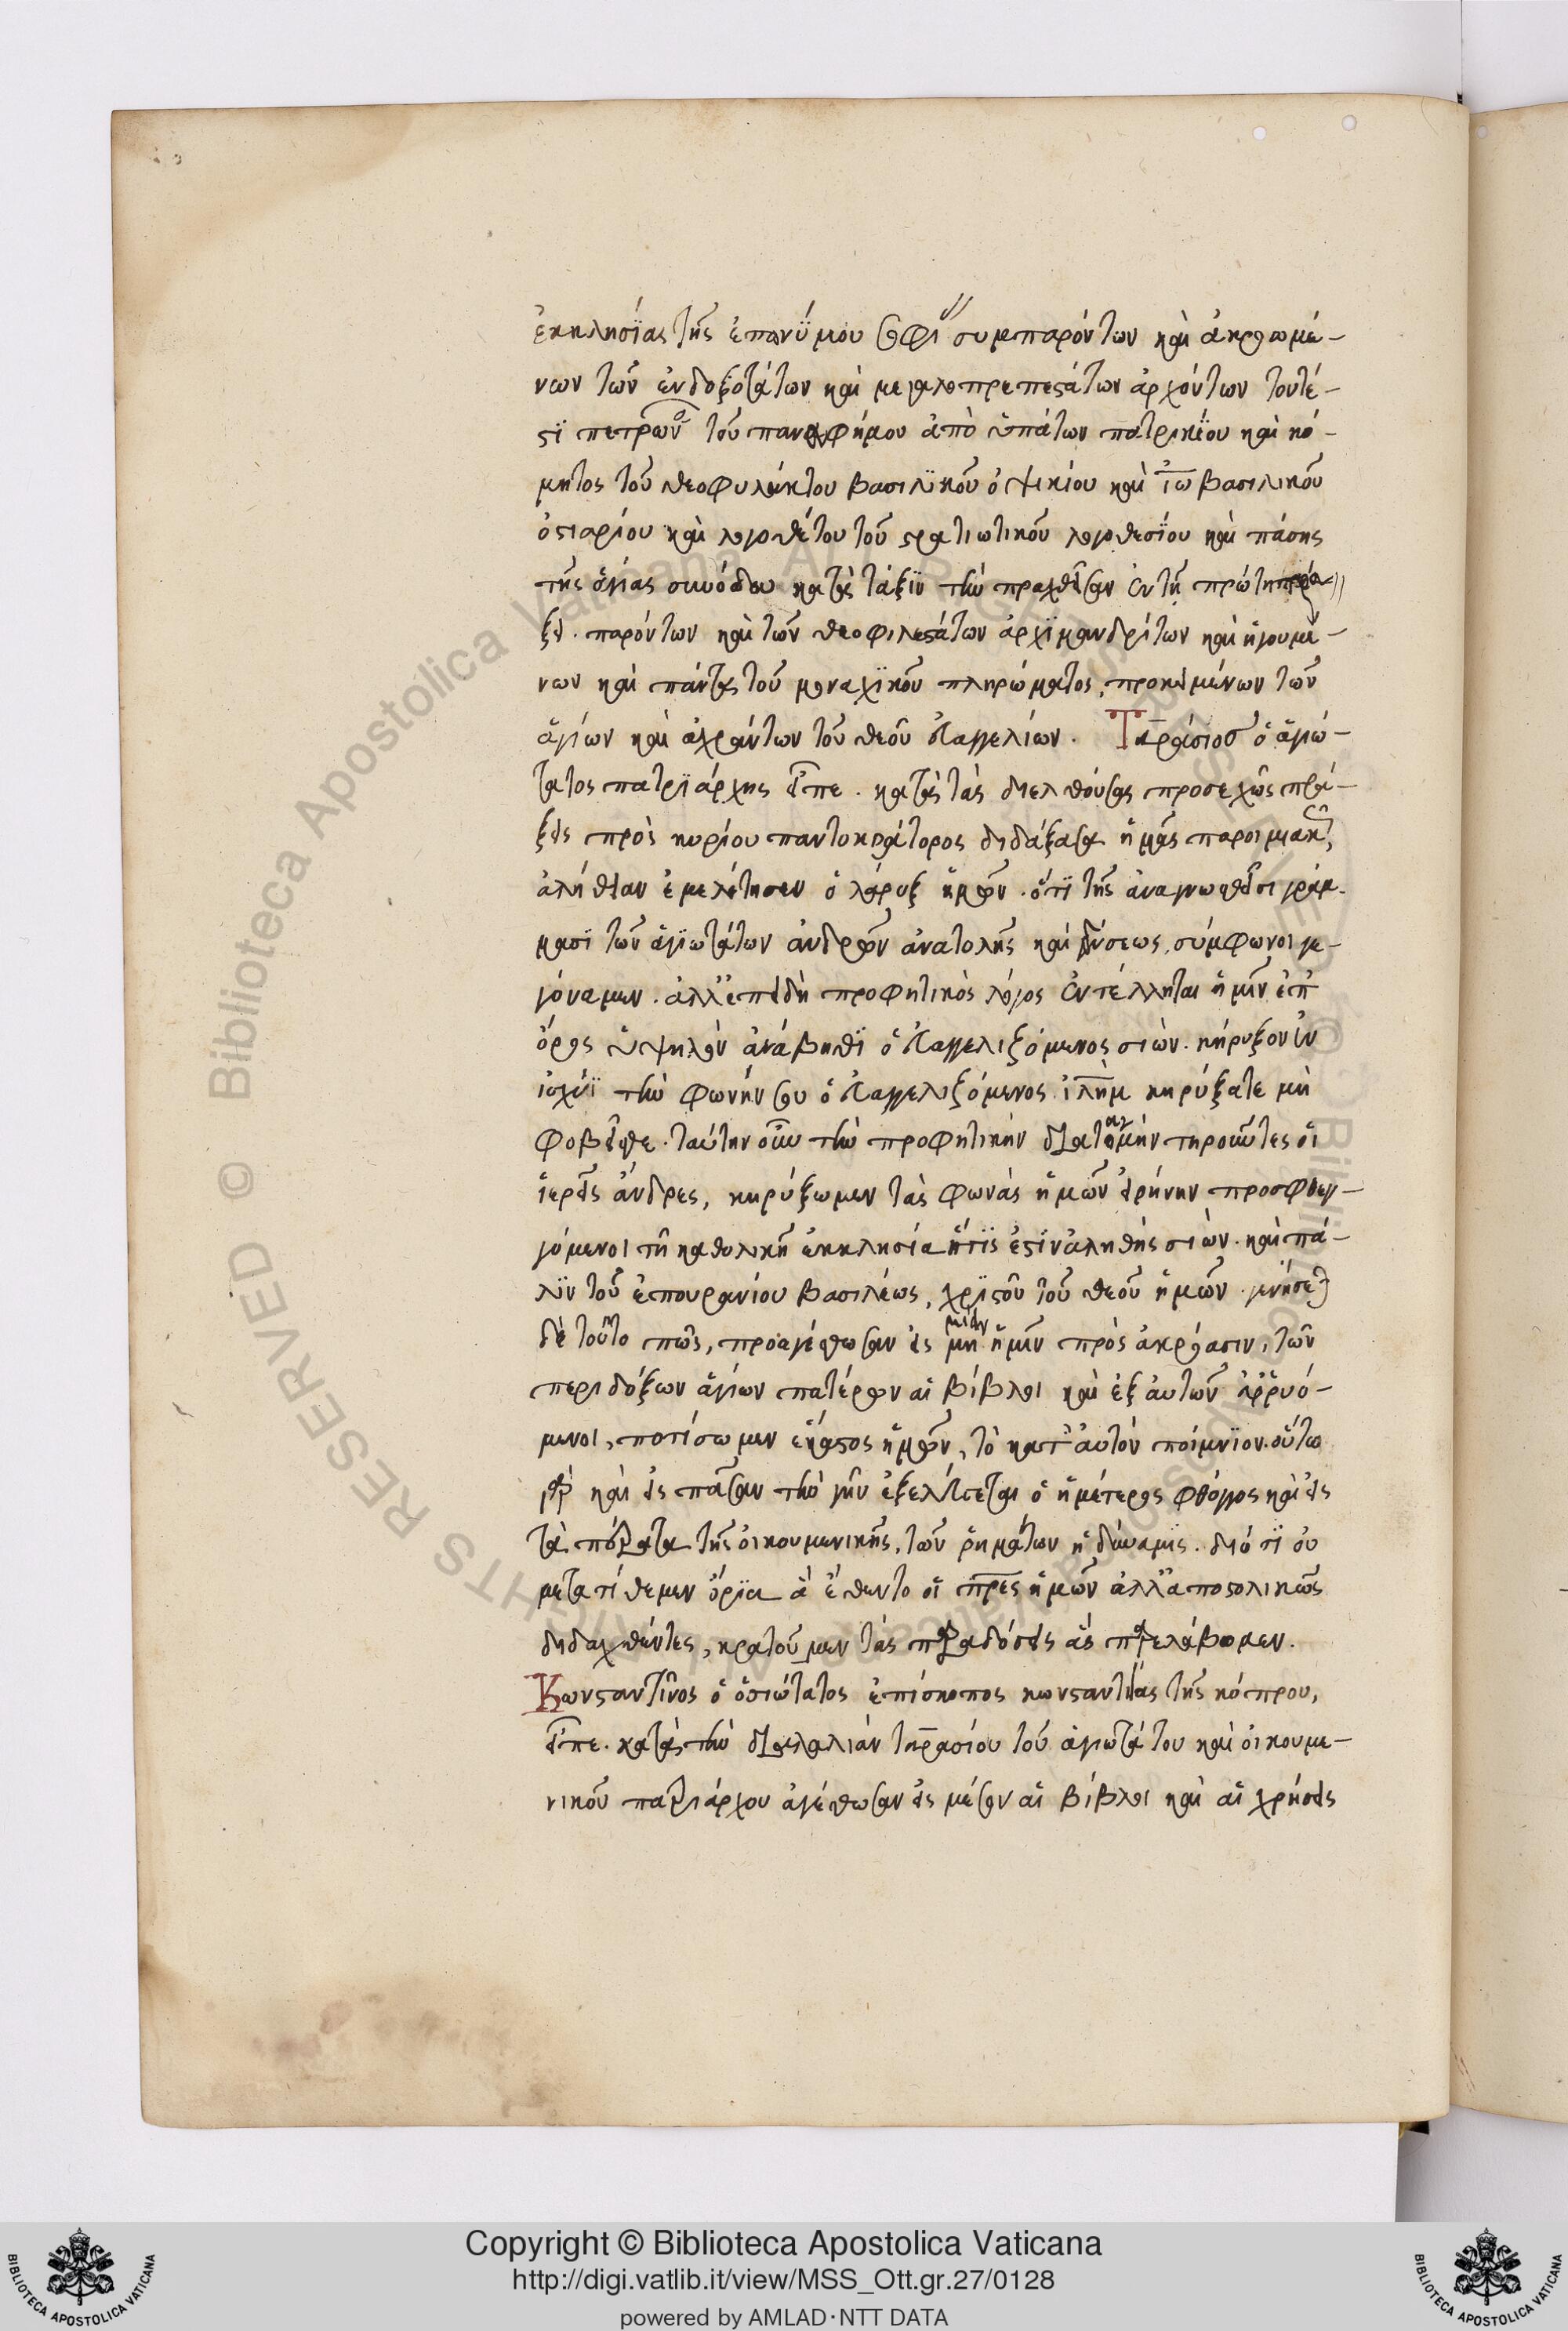 ἐκκλησΐας τῆς ἐπονΰμου σοφΐ συμπαρόντων καὶ ἀκροωμέ-
νων τῶν ἐνδοξοτάτων καὶ μεγαλοπρεπεστάτων ἀρχόντων τουτέ-
στϊ πετρων τοῦ πανευφήμου ἀπὸ ὑπάτων πατρικΐου καὶ κό-
μητος τοῦ θεοφυλάκτου βασιλϊκοῦ ὀψικίου καὶ ἰω βασιλικοῦ
ὀστιαρίου καὶ λογοθέτου τοῦ στρατιωτικοῦ λογοθεσΐου καὶ πάσης
τῆς ἁγίας συνόδου κατὰ τάξϊν τὴν πραχθεῖσαν ἐν τῇ πρώτη πρά-
ξει. παρόντων καὶ τῶν θεοφιλεστάτων ἀρχϊμανδρίτων καὶ ἡγουμέ-
νων καὶ πάντος τοῦ μοναχϊκοῦ πληρώματος, προκειμένων τῶν
ἁγίων καὶ ἀχράντων τοῦ θεοῦ εὐαγγελίων. Ταράσιοσ ὁ ἁγιώ-
τατος πατρϊάρχης εἶπε. κατὰ τὰς διελθούσας προσεχῶς πρά-
ξεις πρὸς κυρίου παντοκράτορος διδάξασα ἡμᾶς παροιμιακῶς,
ἀλήθειαν ἐμελέτησεν ὁ λάρυξ ἡμῶν. ὅτϊ τῆς ἀναγνωσθεῖσι γράμ-
μασϊ τῶν ἁγϊωτάτων ἀνδρῶν ἀνατολῆς καὶ δύσεως, σύμφωνοι γε-
γόναμεν. ἀλλ' ἐπειδὴ προφητικὸς λόγος ἐντέλληται ἡμῖν ἐπ'
ὄρος ὑψηλὸν ἀνάβηθϊ ὁ εὐαγγελιζόμενος σιὼν. κήρυξον ἐν
ἰσχύϊ τὴν φωνήν σου ὁ εὐαγγελιζόμενος ἰλὴμ κηρύξατε μὴ
φοβεῖσθε. ταύτην οὖν τὴν προφητικὴν διαταγὴν τηροῦντες οἱ
ἱερεῖς ἄνδρες, κηρύξωμεν τὰς φωνὰς ἡμῶν εἰρήνην προσφθεγ-
γόμενοι τῇ καθολικῇ ἐκκλησία ἥτϊς ἐστὶν ἀληθὴς σιὼν. καὶ πά-
λϊν τοῦ ἐπουρανίου βασιλέως, χρϊστοῦ τοῦ θεοῦ ἡμῶν. γενήσεται
δὲ τοῦτο πῶς, προαγέσθωσαν εἰς μὴ ἡμῖν πρὸς ἀκρόασιν, τῶν
περιδόξων ἁγίων πατέρων αἱ βίβλοι καὶ ἐξ αὐτῶν ἀρρυό-
μενοι, ποτίσωμεν ἕκαστος ἡμῶν, τὸ κατ' αὐτὸν ποίμνϊον. οὕτω
γὰρ καὶ εἰς πᾶσαν τὴν γῆν ἐξελεύσεται ὁ ἡμέτερος φθόγγος καὶ εἰς
τὰ πέρατα τῆς οἰκουμενικῆς, τῶν ῥημάτων ἡ δύναμις. διό τϊ οὐ
μετατίθεμεν ὅρϊα ἃ ἔθεντο οἱ πρες ἡμῶν ἀλλ' ἀποστολικῶς
διδαχθέντες, κρατοῦμεν τὰς παραδόσεις ἃς παρελάβομεν.
Κωνσταντῖνος ὁ ὁσιώτατος ἐπίσκοπος κωνσταντίας τῆς κύπρου,
εἶπε. κατὰ τὴν διαλαλιὰν ταρασίου τοῦ ἁγιωτάτου καὶ οἰκουμε-
νικοῦ πατριάρχου ἀγέσθωσαν εἰς μέσον αἱ βίβλοι καὶ αἱ χρήσεις
Copyright © Biblioteca Apostolica Vaticana
http://digi.vatlib.it/view/MSS_Ott.gr.27/0128
powered by AMLAD·NTT DATA